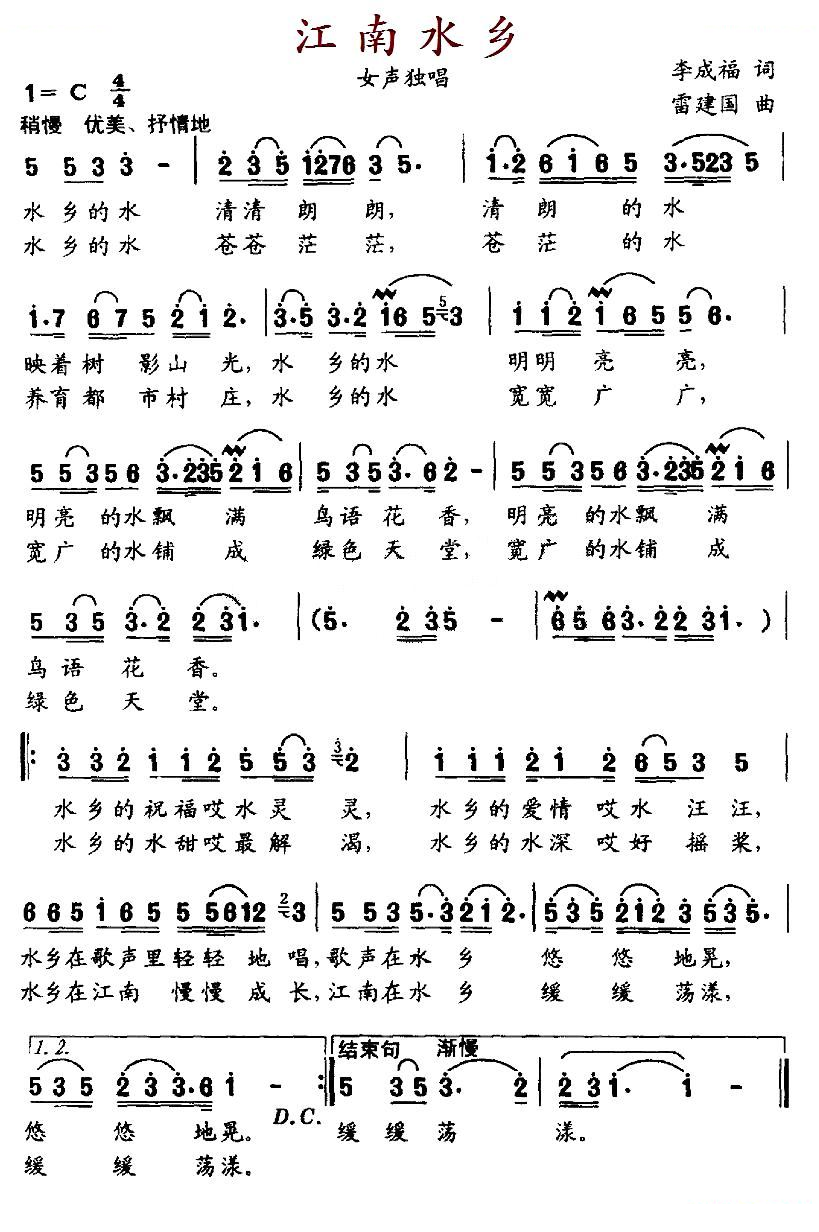 江南水乡
女声独唱
李成福 词
1= C 4/4
雷建国 曲
稍慢 优美、抒情地
5 5 3 3 - | 2 3 5 1276 3 5. | 1.2 6 1 6 5 3.523 5 |
水 乡 的 水 清清 朗 朗, 清 朗 的 水
水 乡 的 水 苍苍 茫 茫, 苍 茫 的 水
1.7 6 7 5 2 1 2. | 3.5 3.2 16 5 5 3 | 1 1 2 1 6 5 5 6. |
映着树 影山 光,水 乡的水 明明 亮 亮,
养育都 市村 庄,水 乡的水 宽宽 广 广,
5 5 3 5 6 3.235 2 1 6 | 5 3 5 3.6 2 - | 5 5 3 5 6 3.235 2 1 6 |
明亮 的水飘 满 鸟语 花 香, 明亮 的水飘 满
宽广 的水铺 成 绿色 天 堂, 宽广 的水铺 成
5 3 5 3.2 2 3 1. | (5. 2 3 5 - | 6 5 6 3.2 2 3 1. ) |
鸟语 花 香。
绿色 天 堂。
‖: 3 3 2 1 1 2 5 5 3 3 2 | 1 1 1 2 1 2 6 5 3 5 |
水 乡的祝福哎水灵 灵, 水乡的爱情 哎水 汪汪,
水 乡的水甜哎最解 渴, 水乡的水深 哎好 摇桨,
6 6 5 1 6 5 5 5612 2 3 | 5 5 3 5.3 2 1 2. | 5 3 5 2 1 2 3 5 3 5. |
水乡在歌声里轻轻 地 唱,歌声在水 乡 悠 悠 地晃,
水乡在江南 慢慢 成 长,江南在水 乡 缓 缓 荡漾,
1. 2. 结束句 渐慢
5 3 5 2 3 3.6 1 - :‖ 5 3 5 3. 2 | 2 3 1. 1 - ‖
D.C.
悠 悠 地晃。 缓 缓 荡 漾。
缓 缓 荡漾。